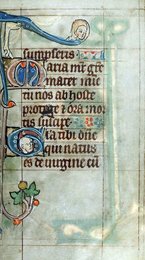 sumpseris
Maria mr gre
mater mie
tu nos ab hoste
protege & ora mor
tis suscipe
Gla tibi dne
qui natus
es de uirgine cu